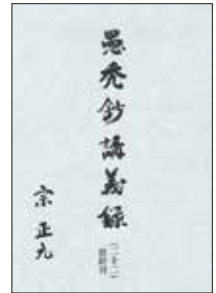 愚禿鈔講義録
宗正元